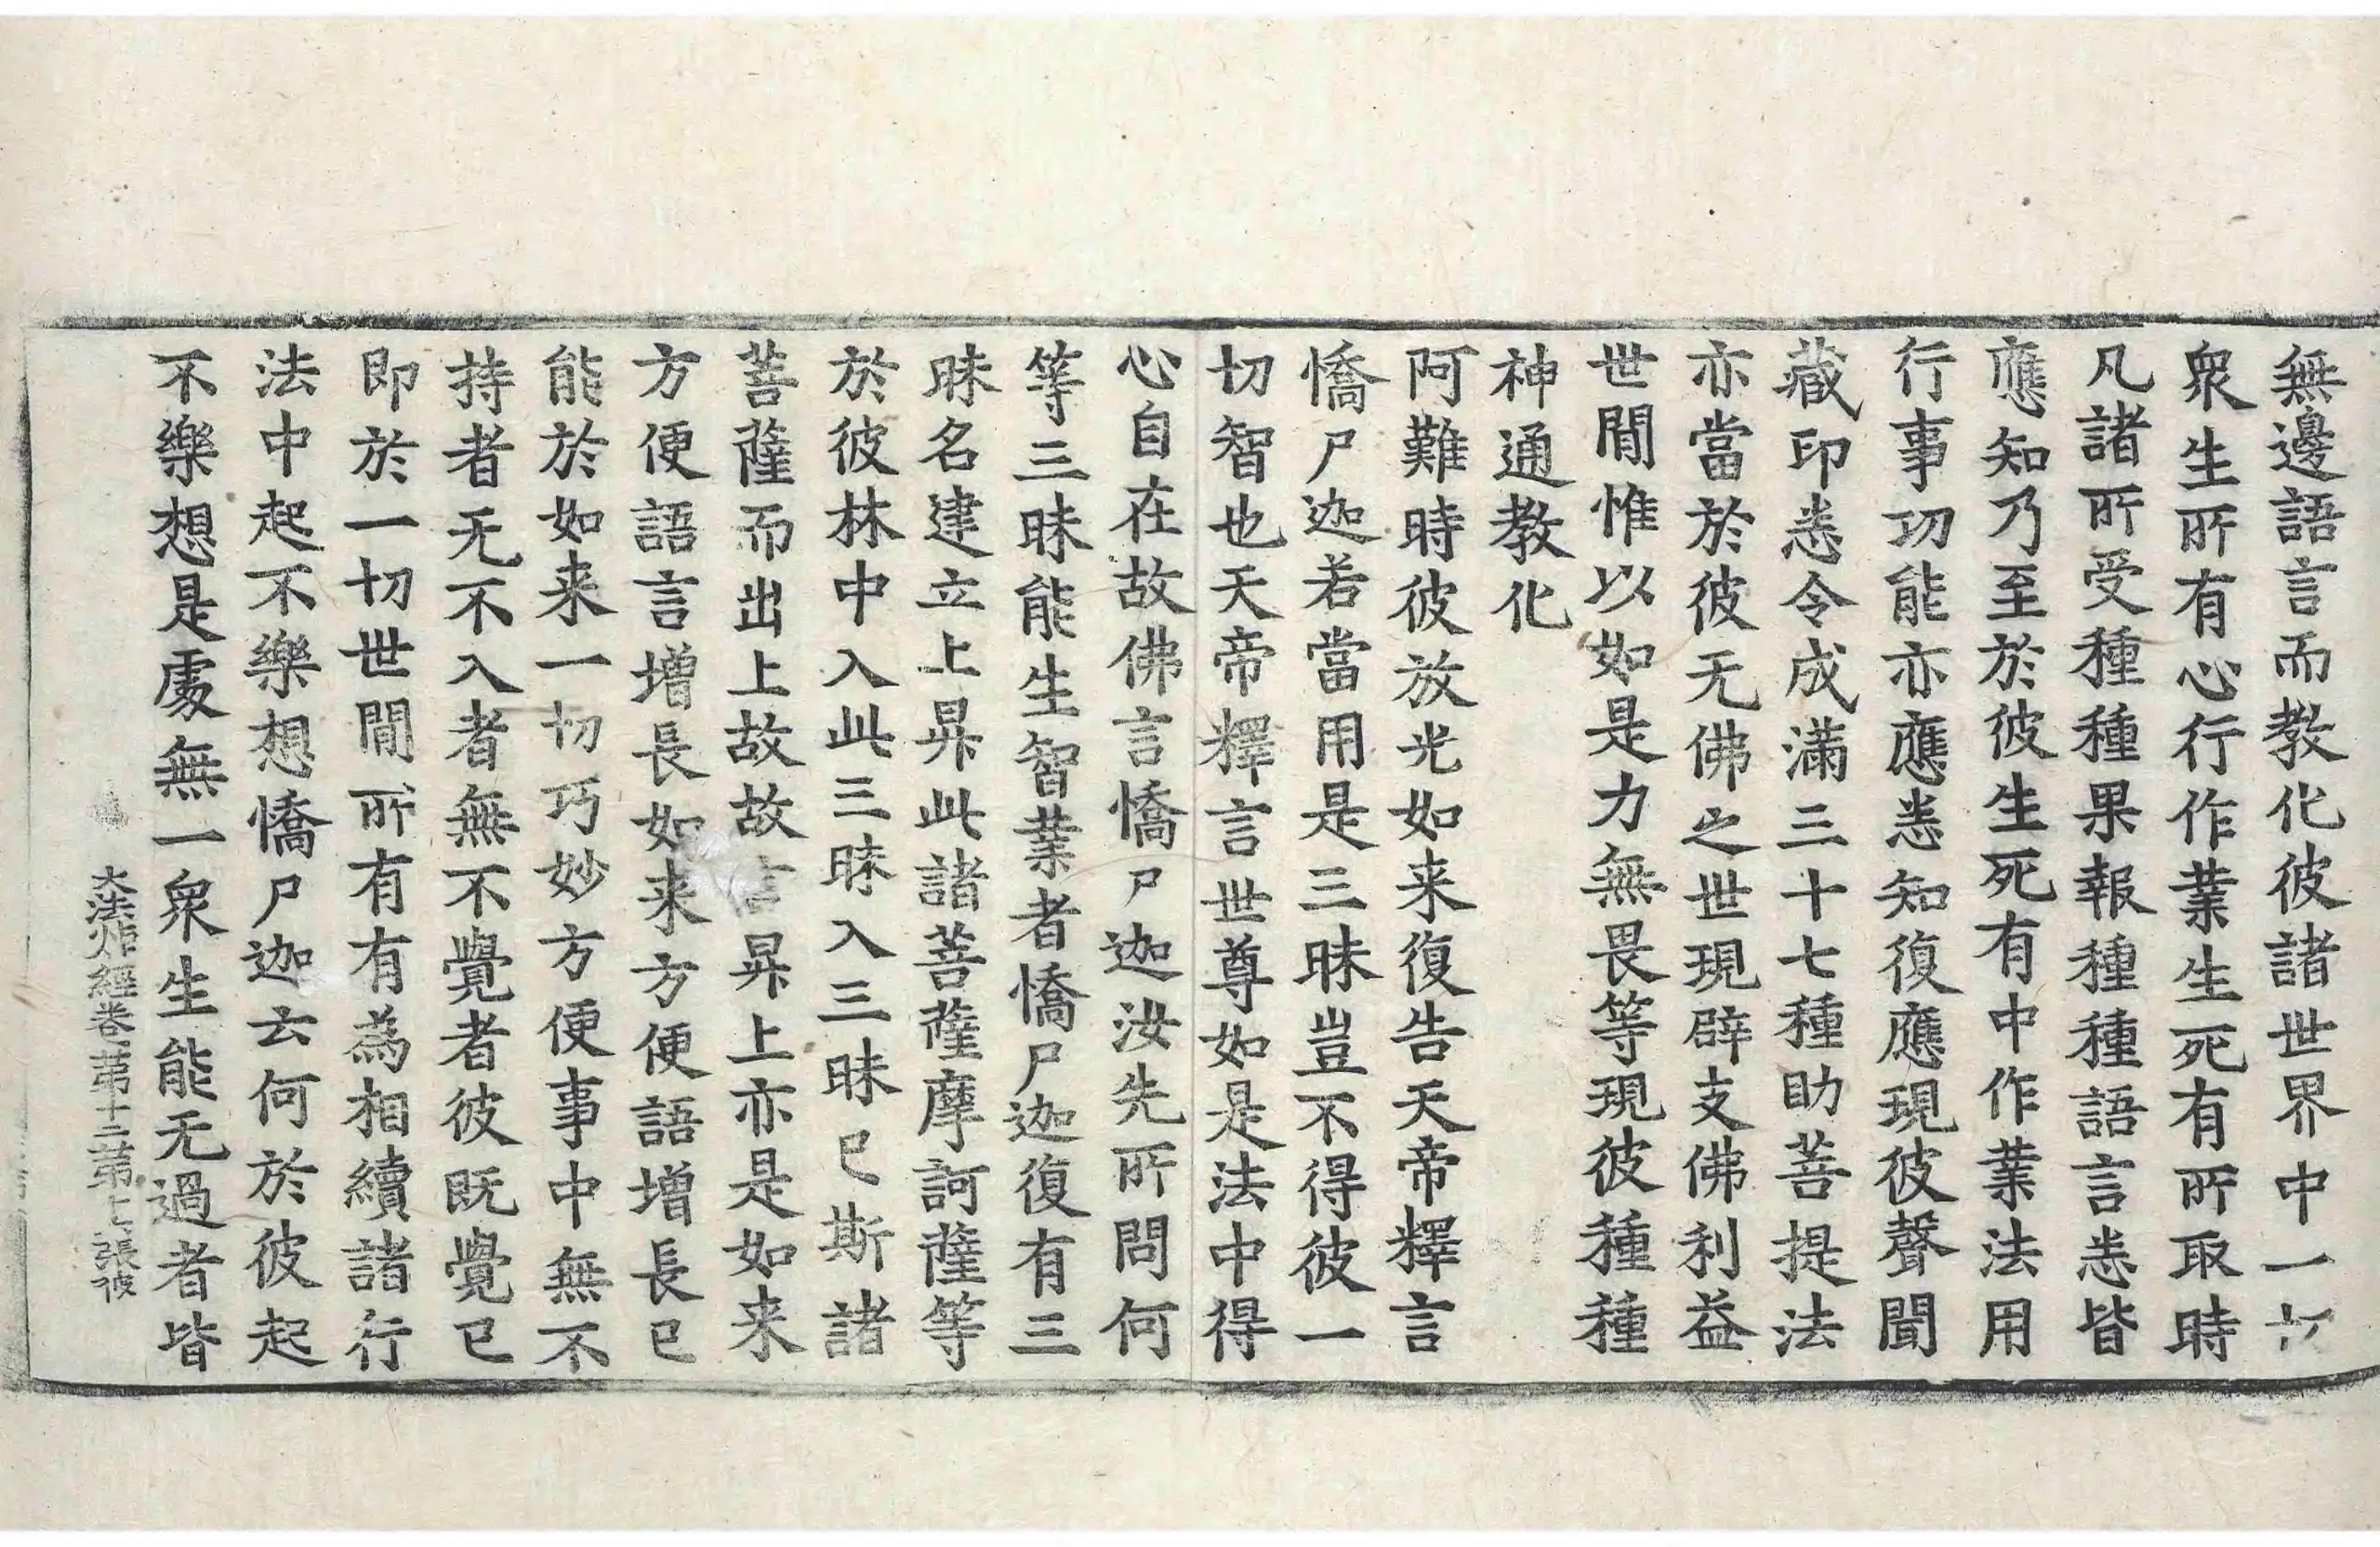 無邊語言而教化彼諸世界中一切
衆生所有心行作業生死有所取時
凡諸所受種種果報種種語言悉皆
應知乃至於彼生死有中作業法用
行事功能亦應悉知復應現彼聲聞
藏印悉令成滿三十七種助菩提法
亦當於彼无佛之世現辟支佛利益
世間惟以如是力無畏等現彼種種
神通教化
阿難時彼放光如来復告天帝釋言
憍尸迦若當用是三昧豈不得彼一
切智也天帝釋言世尊如是法中得
心自在故佛言憍尸迦汝先所問何
等三昧能生智業者憍尸迦復有三
昧名建立上昇此諸菩薩摩訶薩等
於彼林中入此三昧入三昧已斯諸
菩薩而出上故故言昇上亦是如来
方便語言增長如来方便語增長已
能於如来一切巧妙方便事中無不
持者无不入者無不覺者彼既覺已
即於一切世間所有有為相續諸行
法中起不樂想憍尸迦云何於彼起
不樂想是處無一衆生能无過者皆
大法炬經卷第十二第七張彼